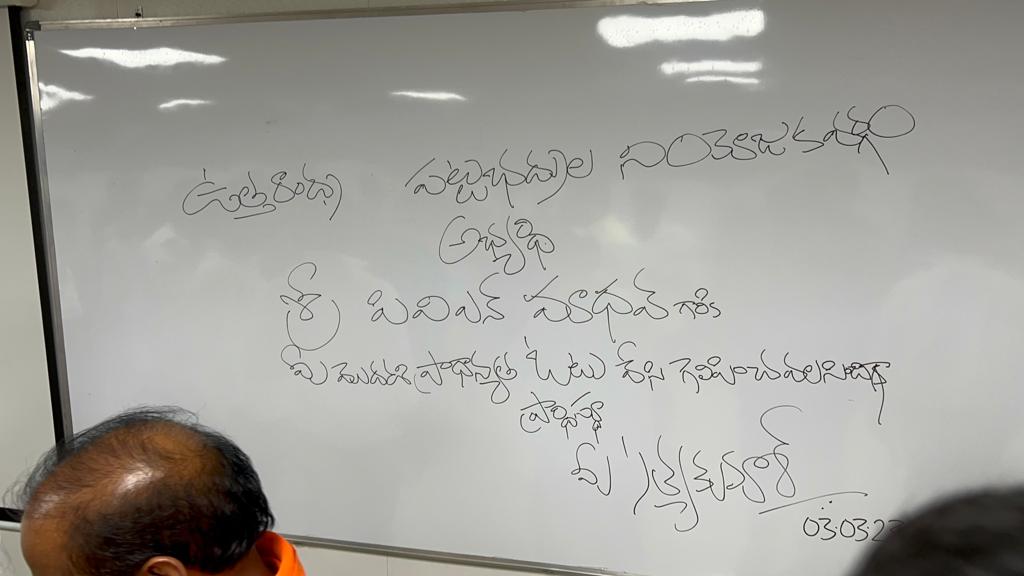 ఉత్తరాంధ్ర పట్టభద్రుల
అభ్యర్థి
శ్రీ పివిఎన్ మాధవ్ గారికి
మీ మొదటి ప్రాధాన్యత ఓటు వేసి గెలిపించవలసిందిగా
ప్రార్థిస్తూ
మీ
03.03.23